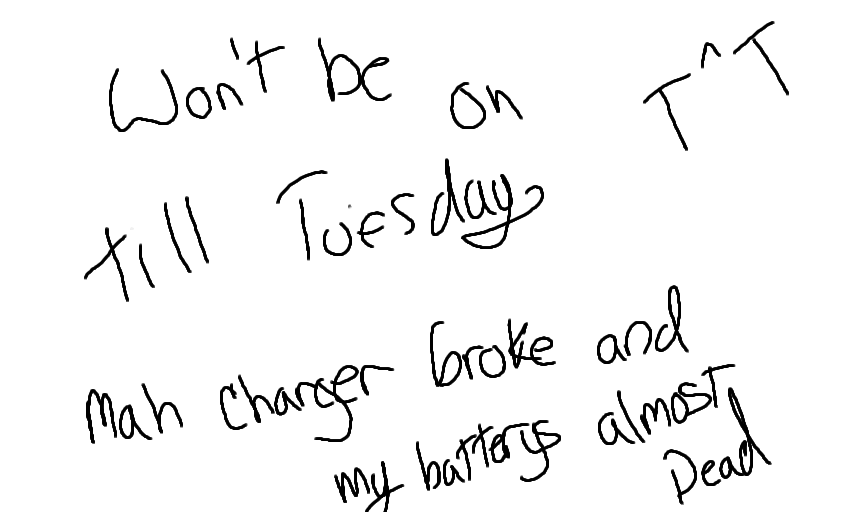 Won't be on T^T
till Tuesday
Mah charger broke and
my batterys almost
Dead